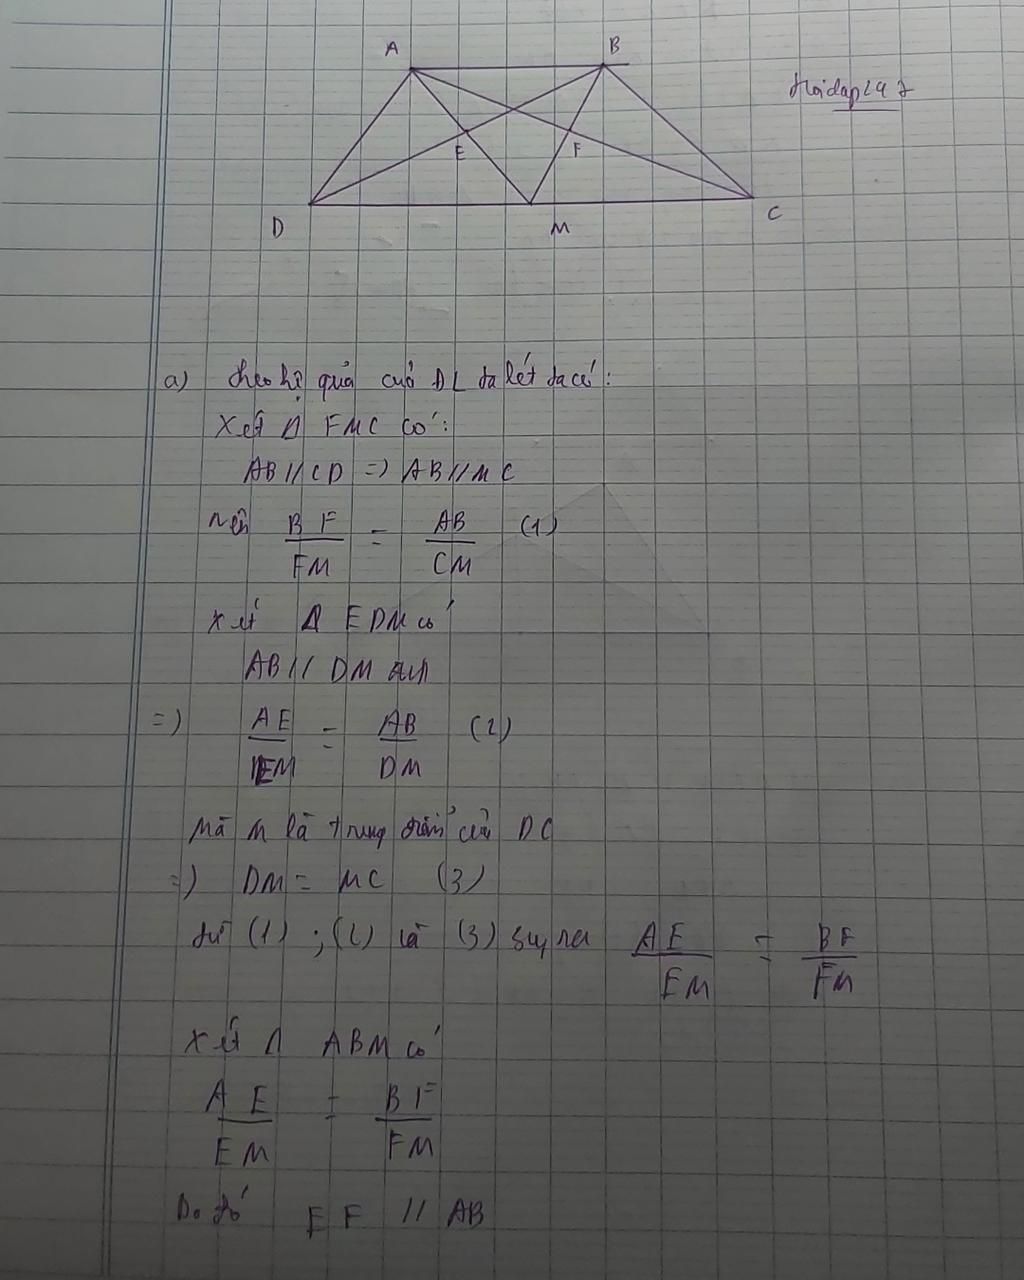 A B
Hoidap247
E F
D M C
a) theo hệ quả cuả DL ta lét ta có:
Xét Δ FMC có:
AB // CD => AB // MC
nên BF/FM = AB/CM (1)
xét Δ EDM có
AB // DM
=> AE/EM = AB/DM (2)
Mà M là trung điểm của DC
=> DM = MC (3)
từ (1) ; (2) và (3) suy ra AE/EM = BF/FM
xét Δ ABM có
AE/EM = BF/FM
Do đó EF // AB